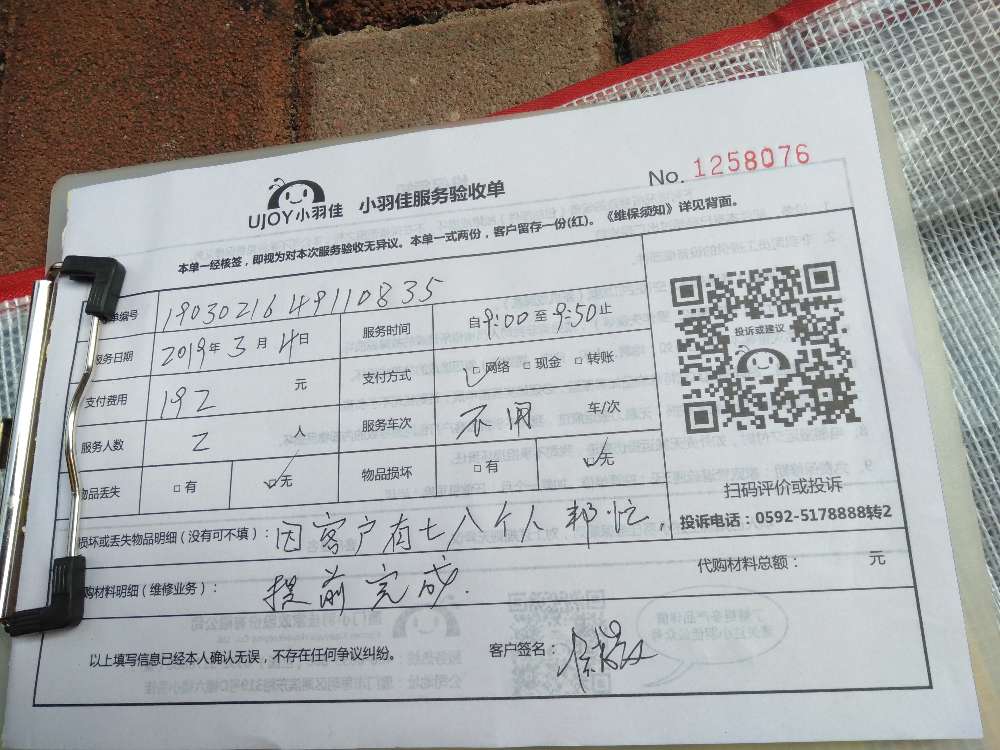 UJOY小羽佳 小羽佳服务验收单 No. 1258076
本单一经核签，即视为对本次服务验收无异议。本单一式两份，客户留存一份(红)。《维保须知》详见背面。
单编号 1903021649110835
服务日期 2019年 3月 4日 服务时间 自9:00至9:50止
支付费用 192 元 支付方式 □网络 □现金 □转账
服务人数 2 人 服务车次 不用 车/次
物品丢失 □有 □无 物品损坏 □有 □无
投诉或建议
扫码评价或投诉
投诉电话：0592-5178888转2
损坏或丢失物品明细（没有可不填）： 因客户有七八个人邦忙，
购材料明细（维修业务）： 提前完成. 代购材料总额： 元
以上填写信息已经本人确认无误，不存在任何争议纠纷。 客户签名：